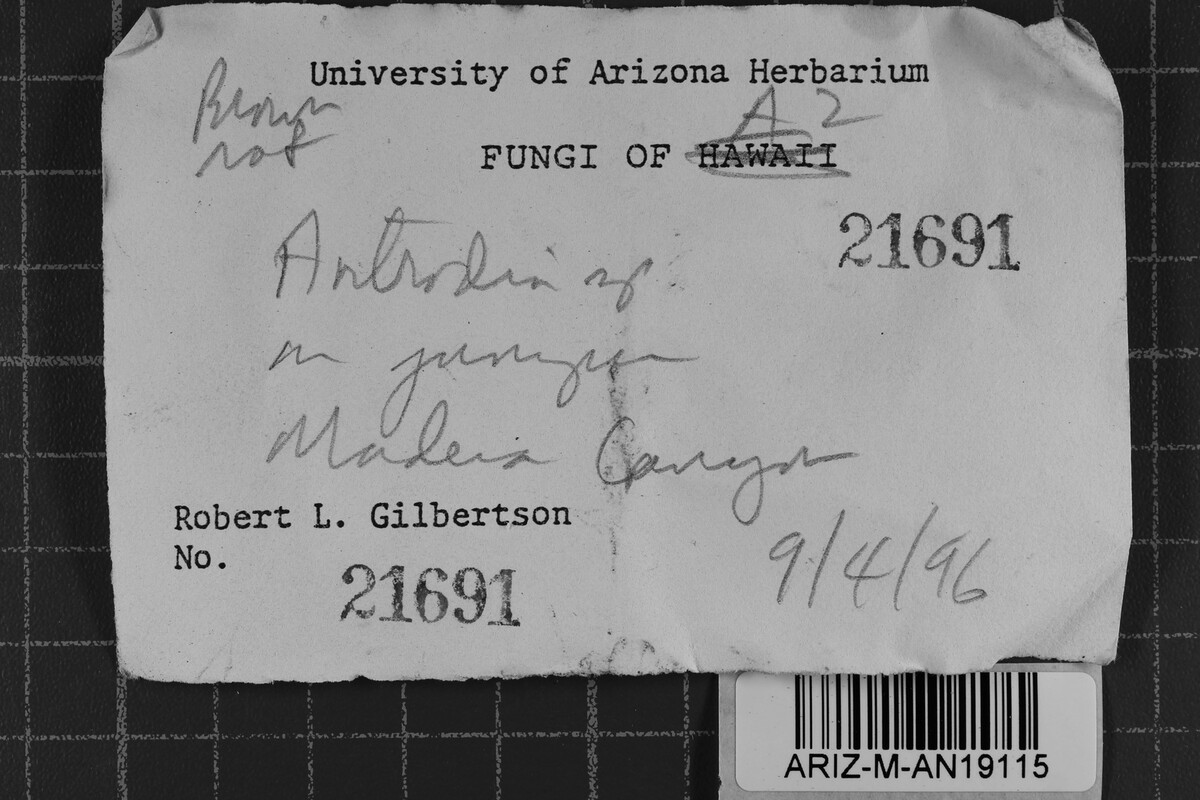 University of Arizona Herbarium
Brown
rot
AZ
FUNGI OF HAWAII
21691
Antrodia sp.
on juniper
Madera Canyon
Robert L. Gilbertson
No.
21691
9/4/96
ARIZ-M-AN19115